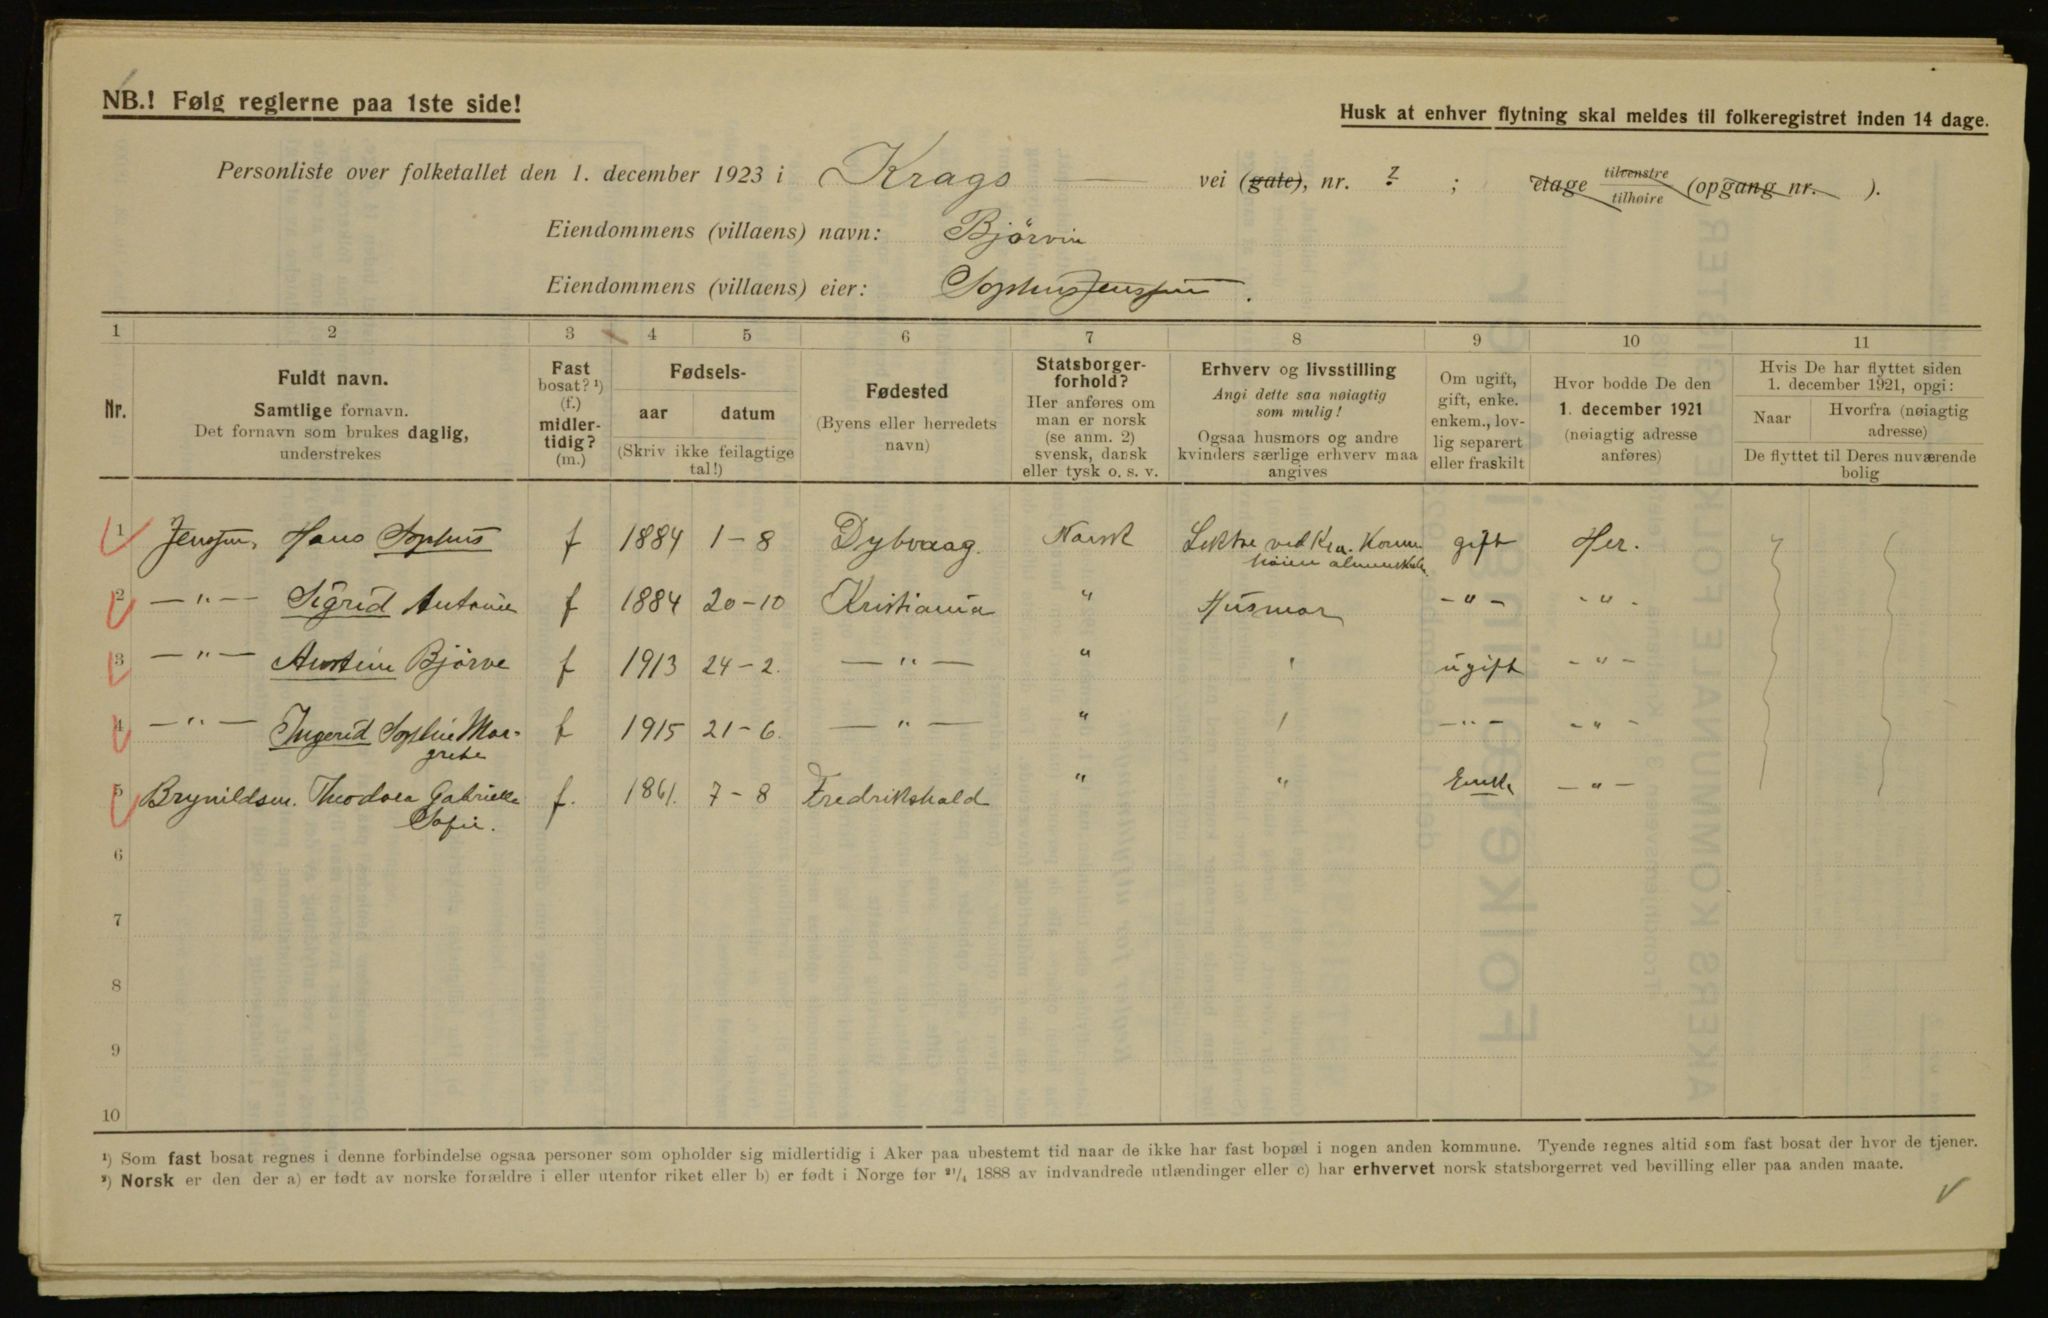 NB.! Følg reglerne paa 1ste side!
Husk at enhver flytning skal meldes til folkeregistret inden 14 dage.
Personliste over folketallet den 1. december 1923 i Krags — vei (gate), nr. ? ; etage tilvenstre tilhøire (opgang nr. ).
Eiendommens (villaens) navn: Bjørvin
Eiendommens (villaens) eier: Sophus Jenssen.
1 2 3 4 5 6 7 8 9 10 11
Nr.
Fuldt navn.
Samtlige fornavn.
Det fornavn som brukes daglig,
understrekes
Fast
bosat? ¹)
(f.)
midler-
tidig?
(m.)
Fødsels-
aar datum
(Skriv ikke feilagtige
tal!)
Fødested
(Byens eller herredets
navn)
Statsborger-
forhold?
Her anføres om
man er norsk
(se anm. 2)
svensk, dansk
eller tysk o. s. v.
Erhverv og livsstilling
Angi dette saa nøiagtig
som mulig!
Ogsaa husmors og andre
kvinders særlige erhverv maa
angives
Om ugift,
gift, enke.
enkem., lov-
lig separert
eller fraskilt
Hvor bodde De den
1. december 1921
(nøiagtig adresse
anføres)
Hvis De har flyttet siden
1. december 1921, opgi:
Naar Hvorfra (nøiagtig
adresse)
De flyttet til Deres nuværende
bolig
1 Jenssen, Hans Sophus f 1884 1-8 Dybvaag. Norsk Lektor ved Kra. Komm. gift Her.
høiere almenskole
2 —"— Sigrid Antonie f 1884 20-10 Kristiania " Husmor -"- -"-
3 —"— Austein Bjørve f 1913 24-2. —"— " ugift -"-
4 —"— Ingerid Sophie Mar- f 1915 21-6. —"— " -"- -"-
grete
5 Brynildsen. Theodora Gabriella f. 1861. 7-8 Fredrikshald " " Enke -"-
Sofie.
6
7
8
9
10
¹) Som fast bosat regnes i denne forbindelse ogsaa personer som opholder sig midlertidig i Aker paa ubestemt tid naar de ikke har fast bopæl i nogen anden kommune. Tyende regnes altid som fast bosat der hvor de tjener.
²) Norsk er den der a) er født av norske forældre i eller utenfor riket eller b) er født i Norge før ²¹/₄ 1888 av indvandrede utlændinger eller c) har erhvervet norsk statsborgerret ved bevilling eller paa anden maate.